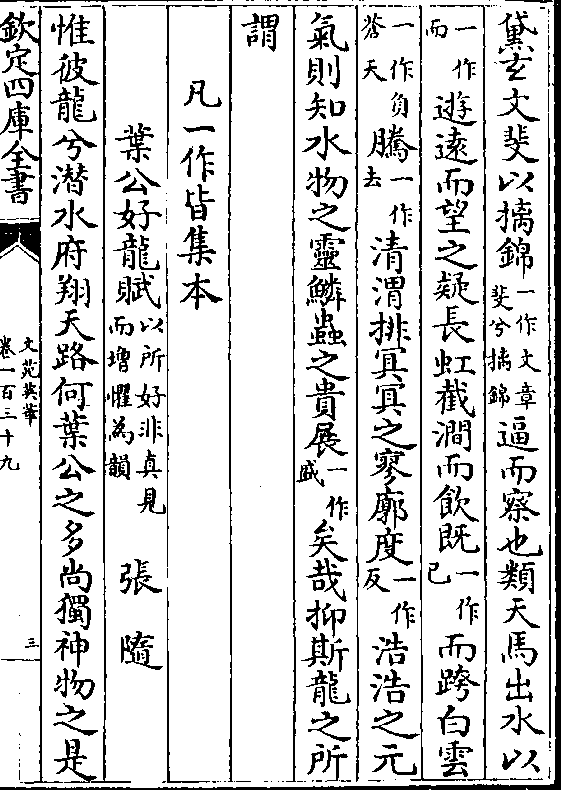 黛玄文斐以摛錦一作文章斐兮摛錦逼而察也類天馬出水以
一作而遊遠而望之疑長虹截澗而飲既一作已而跨白雲
一作負蒼天騰一作去清渭排冥冥之寥廓度一作反浩浩之元
氣則知水物之靈鱗蟲之貴展一作盛矣哉抑斯龍之所
謂
凡一作皆集本
葉公好龍賦以所好非真見而增懼為韻 張隨
惟彼龍兮潛水府翔天路何葉公之多尚獨神物之是
欽定四庫全書
文苑英華
卷一百三十九
三